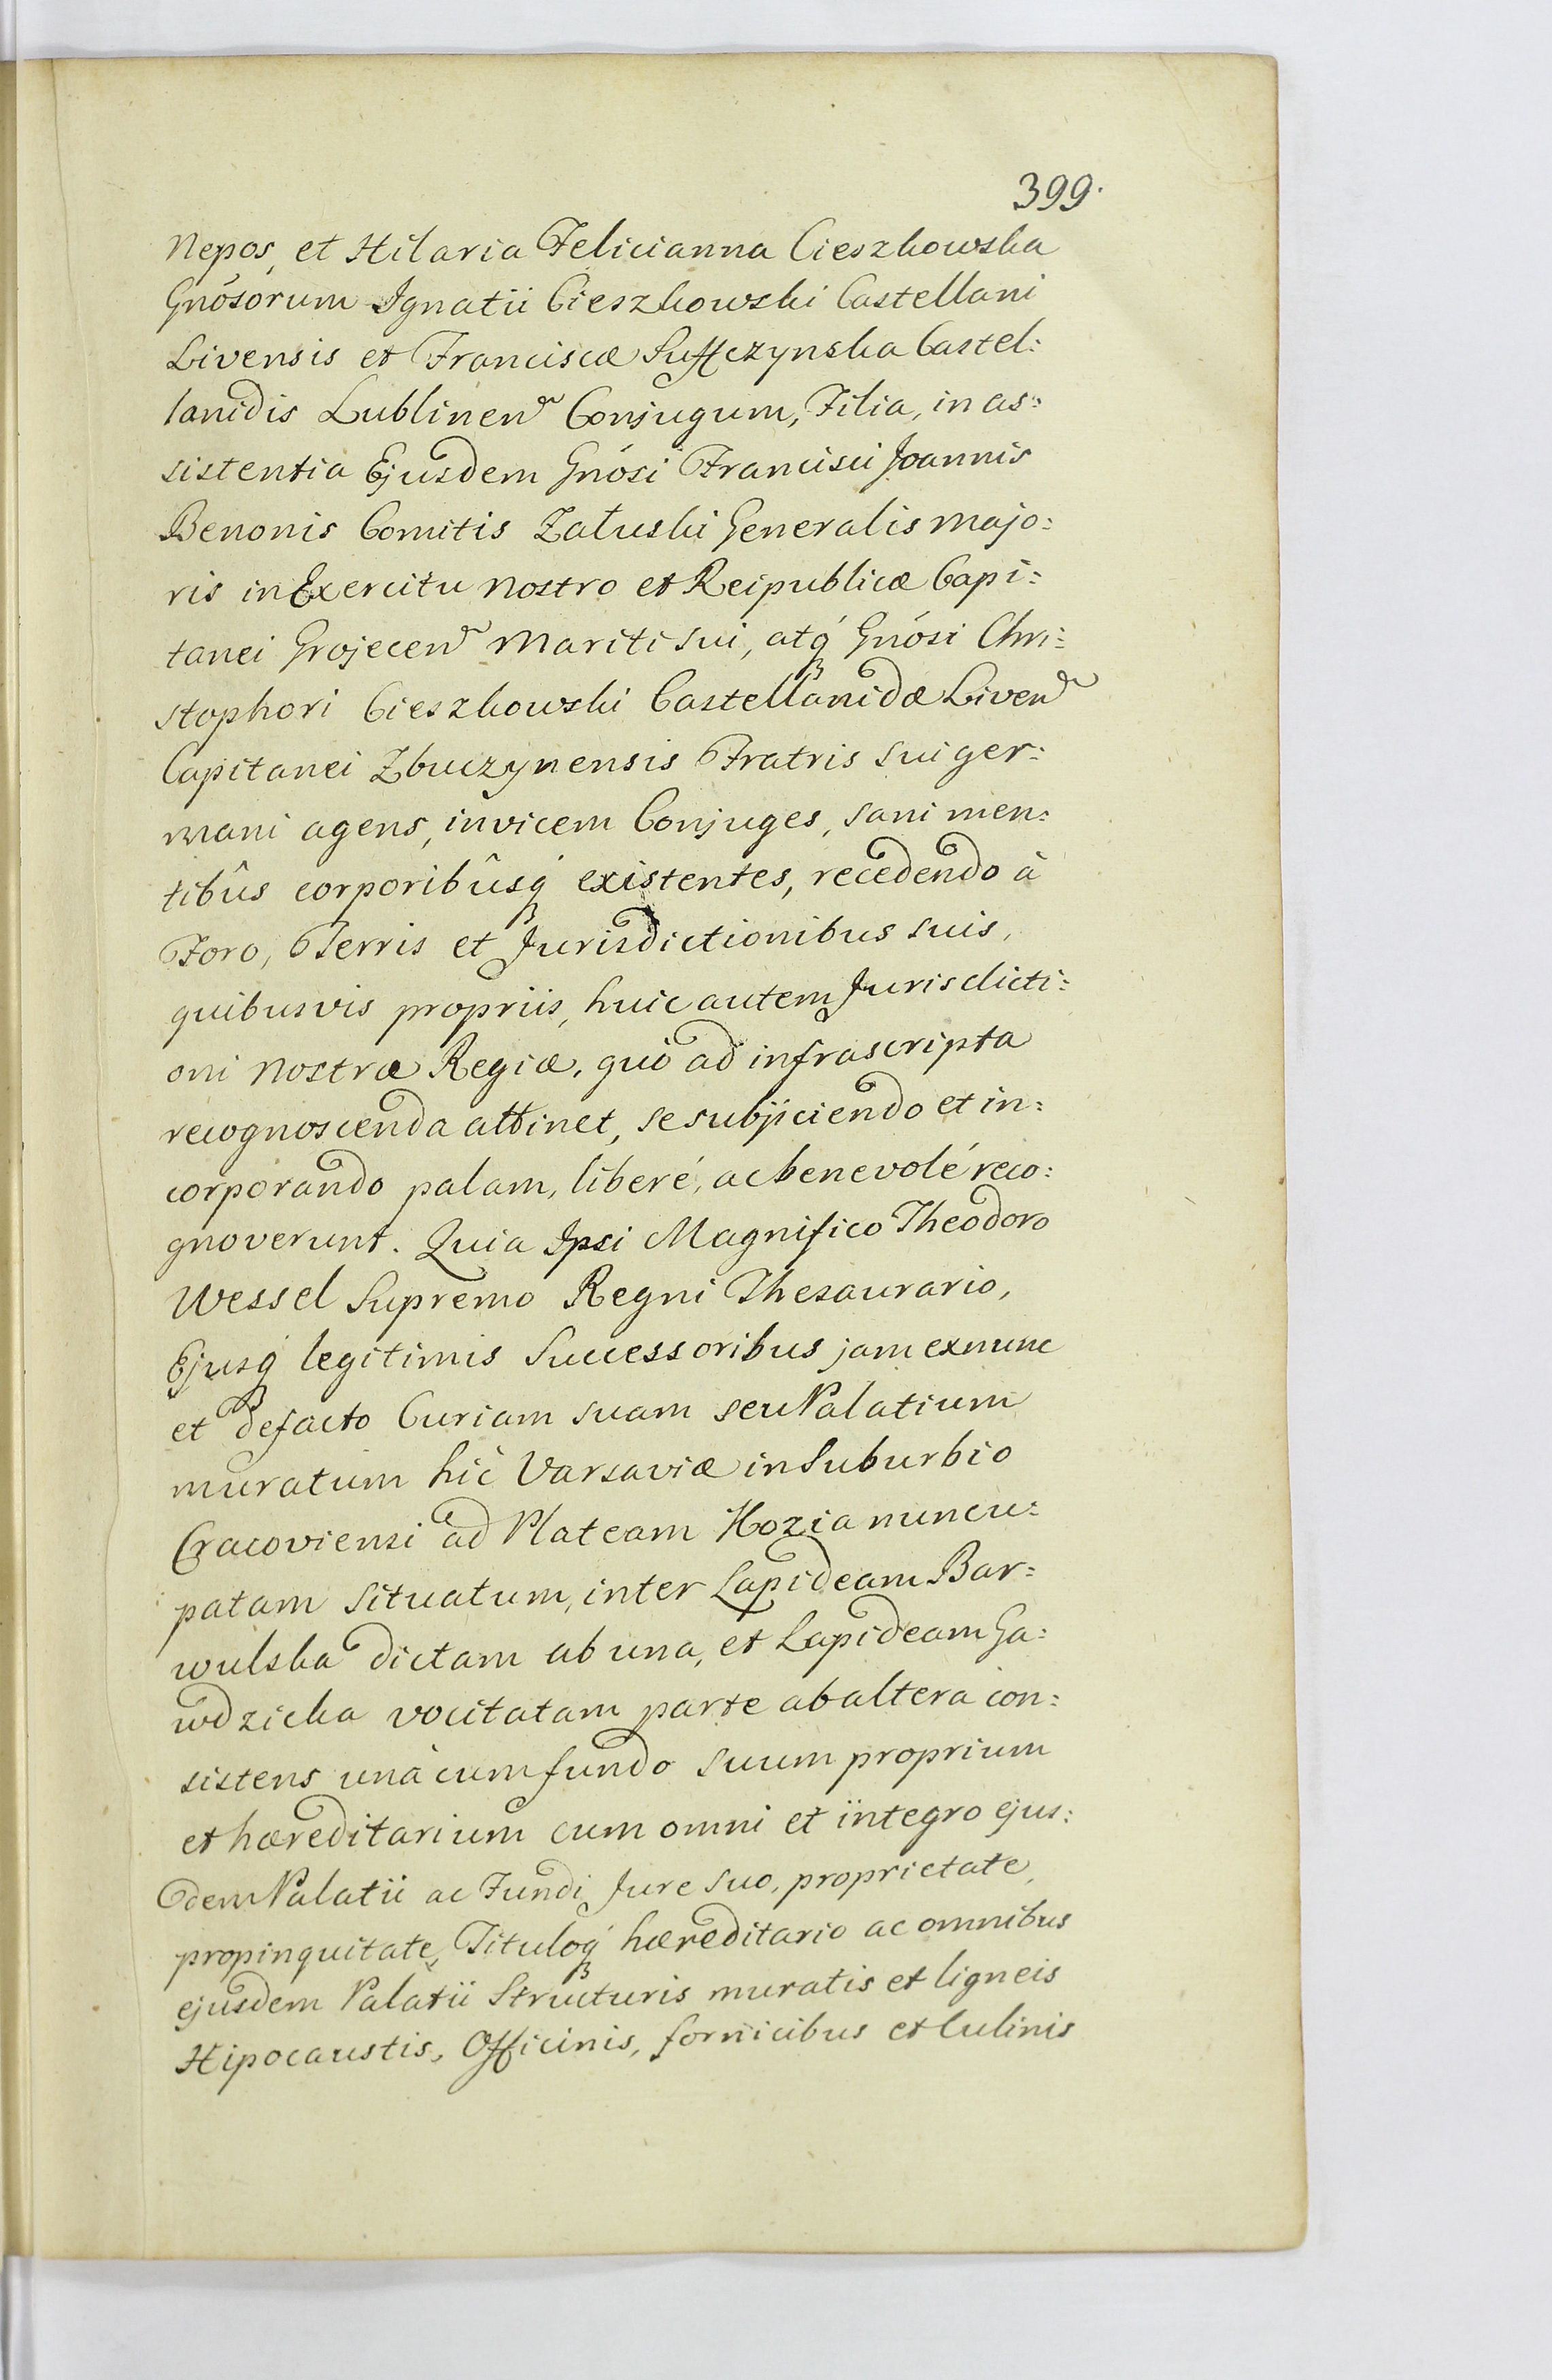 399.
Nepos, et Hilaria Felicianna Cieszkowska
Gnósorum Ignatii Cieszkowski Castellani
Livensis et Franciscæ Suffczynska Castel:
lanidis Lublinen Conjugum, Filia, in as:
sistentia Ejusdem Gnósi Francisci Joannis
Benonis Comitis Załuski Generalis majo:
ris in Exercitu nostro et Reipublicæ Capi:
tanei Grojecen Mariti sui, atq́ Gnósi Chri:
stophori Cieszkowski Castellanidæ Liven
Capitanei Zbuczynensis Fratris sui ger:
mani agens, invicem Conjuges, sani men:
tibûs corporibûsq́ existentes, recedendo à
Foro, Terris et Jurisdictionibus suis,
quibusvis propriis, huic autem Jurisdicti:
oni nostræ Regiæ, quò ad infrascripta
recognoscenda attinet, se subjiciendo et in:
corporando palam, liberé, ac benevolé reco:
gnoverunt. Quia Ipsi Magnifico Theodoro
Wessel Supremo Regni Thesaurario,
Ejusq́ legitimis Successoribus jam exnunc
et defacto Curiam suam seu Palatium
muratum hic Varsaviæ in Suburbio
Cracoviensi ad Plateam Kozia nuncu:
patam situatum, inter Lapideam Bar:
wulska dictam ab una, et Lapideam Ga:
wdzicka vocitatam parte ab altera con:
sistens unà cum fundo suum proprium
et hæreditarium cum omni et integro ejus:
dem Palatii ac Fundi Jure suo, proprietate,
propinquitate, Tituloq́ hæreditario ac omnibus
ejusdem Palatii Structuris muratis et ligneis
Hipocaustis, Officinis, fornicibus et Culinis